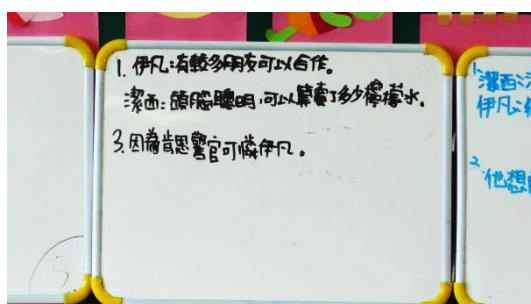 1. 伊凡:有較多朋友可以合作。
潔西:頭腦聰明,可以算賣了多少檸檬水。
3.因為肯恩警官可憐伊凡。
5
1.
潔西:
伊凡:
2.
他想